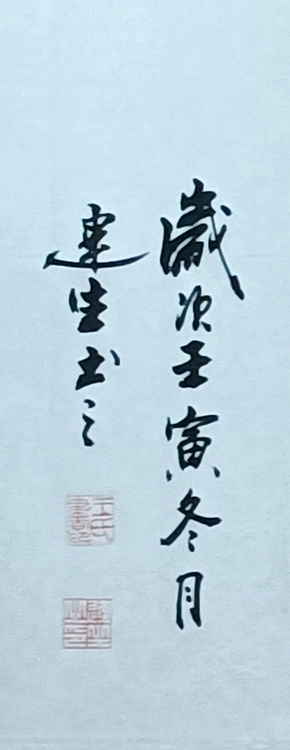 歲次壬寅冬月
連生书之